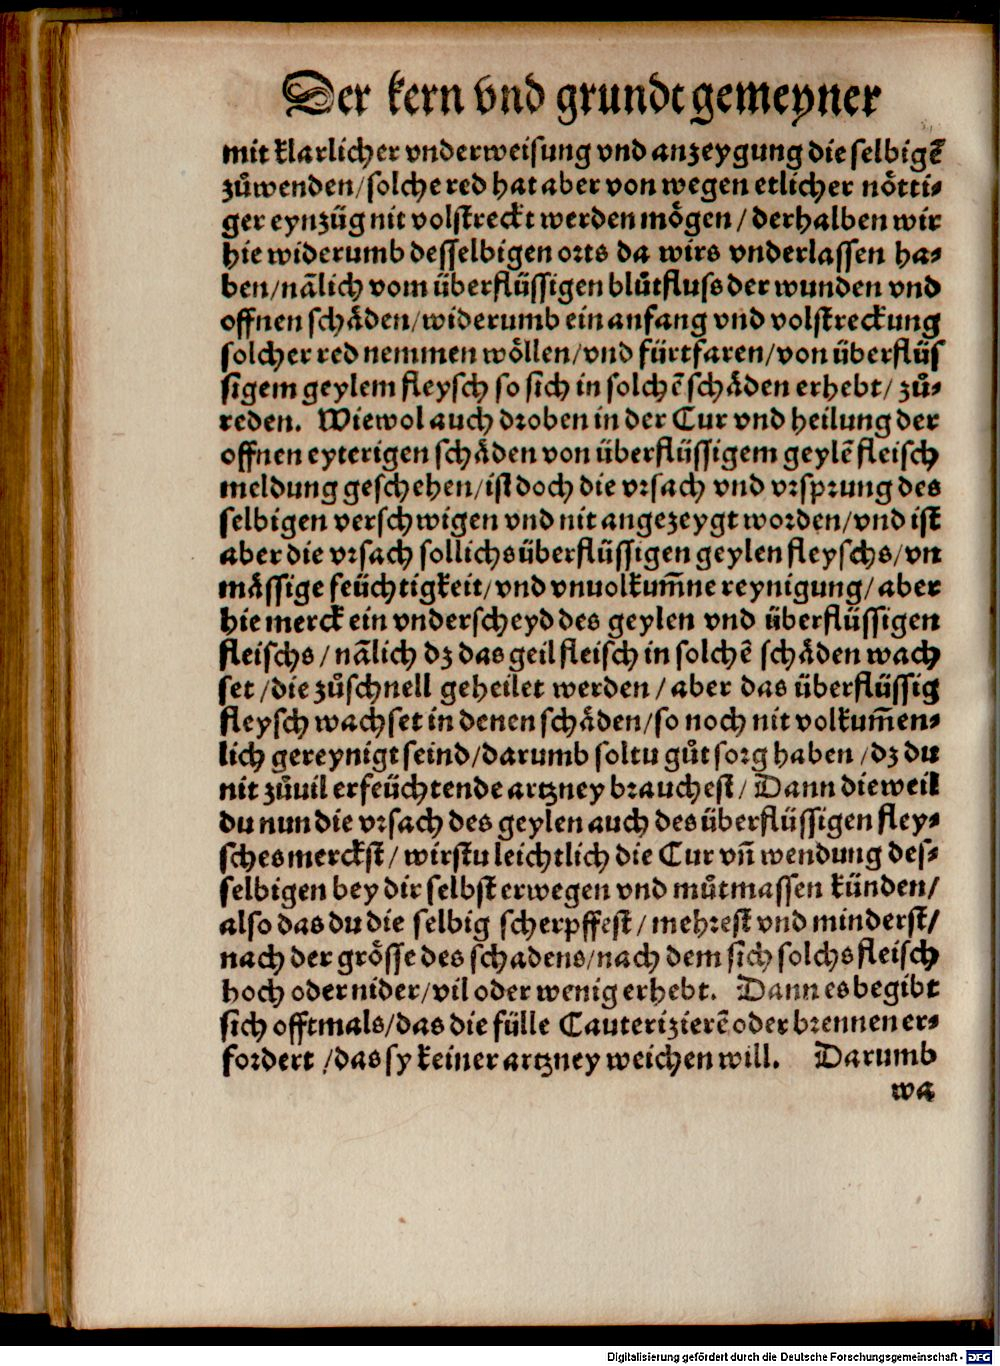 Der kern vnd grundt gemeyner
mit klarlicher vnderweisung vnd anzeygung die selbigẽ
zůwenden/solche red hat aber von wegen etlicher nötti⸗
ger eynzüg nit volstreckt werden mögen / derhalben wir
hie widerumb desselbigen orts da wirs vnderlassen ha⸗
ben/nãlich vom überflüssigen blůtfluss der wunden vnd
offnen schäden/widerumb ein anfang vnd volstreckung
solcher red nemmen wöllen/vnd fürtfaren/von überflüs
sigem geylem fleysch so sich in solchẽ schäden erhebt/ zů⸗
reden. Wiewol auch droben in der Cur vnd heilung der
offnen eyterigen schäden von überflüssigem geylẽ fleisch
meldung geschehen/ist doch die vrsach vnd vrsprung des
selbigen verschwigen vnd nit angezeygt worden/vnd ist
aber die vrsach sollichs überflüssigen geylen fleyschs/vn
mässige feüchtigkeit/vnd vnuolkum̃ne reynigung/ aber
hie merck ein vnderscheyd des geylen vnd überflüssigen
fleischs / nãlich dz das geil fleisch in solchẽ schäden wach
set /die zůschnell geheilet werden / aber das überflüssig
fleysch wachset in denen schäden/so noch nit volkum̃en⸗
lich gereynigt seind/darumb soltu gůt sorg haben /dz du
nit zůuil erfeüchtende artzney brauchest/ Dann dieweil
du nun die vrsach des geylen auch des überflüssigen fley⸗
sches merckst / wirstu leichtlich die Cur vñ wendung des⸗
selbigen bey dir selbst erwegen vnd můtmassen künden/
also das du die selbig scherpffest / mehrest vnd minderst/
nach der grösse des schadens/nach dem sich solchs fleisch
hoch oder nider/vil oder wenig erhebt. Dann es begibt
sich offtmals/das die fülle Cauterizierẽ oder brennen er⸗
fordert /das sy keiner artzney weichen will. Darumb
wa
Digitalisierung gefördert durch die Deutsche Forschungsgemeinschaft - DFG